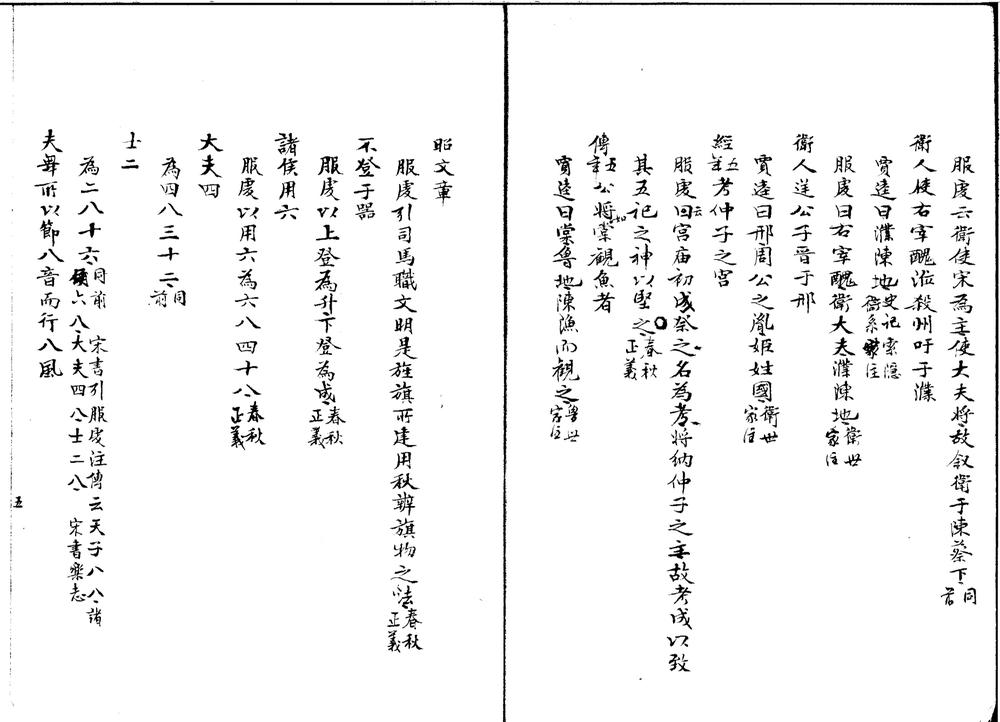 服虔云衛使宋為主使大夫將故叙衛于陳蔡下同前
衛人使右宰醜涖殺州吁于濮
賈逵曰濮陳地史記索隱衛系家注
服虔曰右宰醜衛大夫濮陳地衛世家注
衛人逆公子晉于邢
賈逵曰邢周公之胤姬姓國衛世家注
經五年考仲子之宮
服虔云宮庙初成祭之名為考將納仲子之主故考成以致
其五祀之神以堅之春秋正義
傳五年公將如棠觀魚者
賈逵曰棠魯地陳漁而觀之魯世家注
昭文章
服虔引司馬職文明是旌旗所建用秋辨旗物之法春秋正義
不登于器
服虔以上登為升下登為成春秋正義
諸侯用六
服虔以用六為六八四十八春秋正義
大夫四
為四八三十二同前
士二
為二八十六同前 宋書引服虔注傳云天子八八諸侯六八大夫四八士二八 宋書樂志
夫舞所以節八音而行八風
五